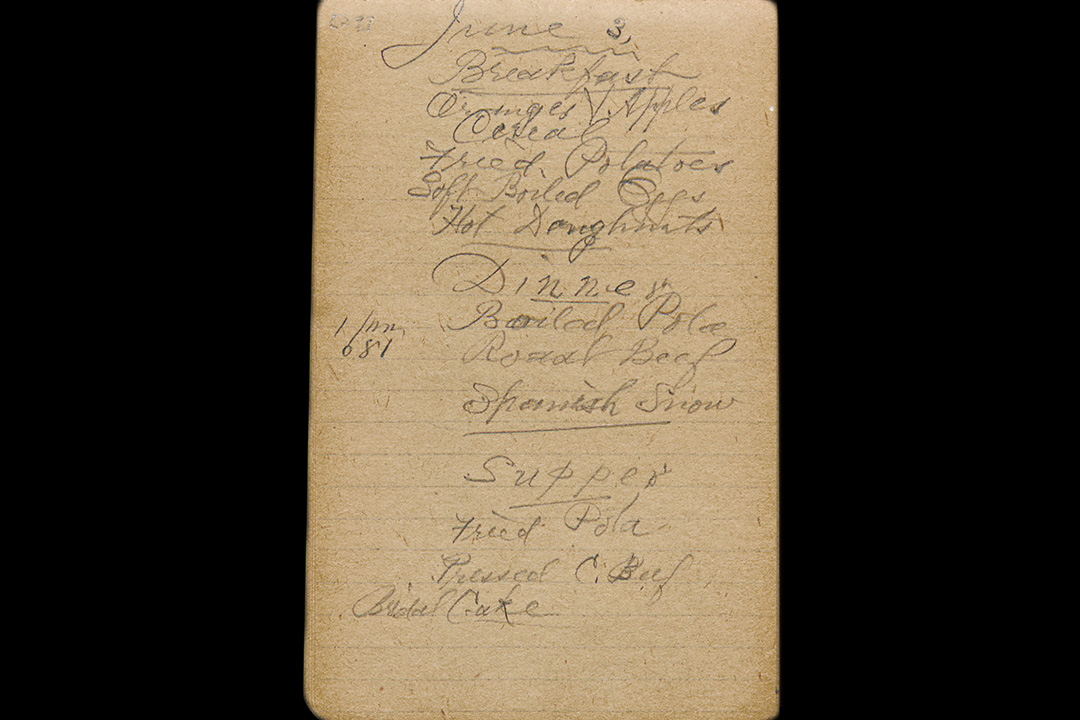 June 3,
Breakfast
Oranges Apples
Cereal
Fried Potatoes
Soft Boiled Eggs
Hot Doughnuts
Dinner
Boiled Pota
Roast Beef
Spanish Snow
Supper
Fried Pota
Pressed C. Beef
Bridal Cake